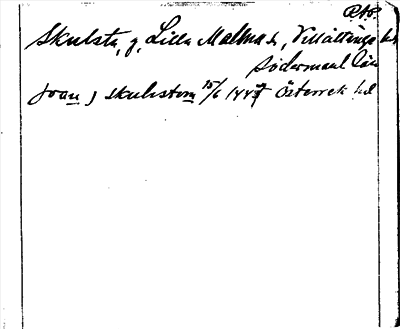 Skulsta, g, Lilla Malma s, Villåttinge hd
Södermanl län
joan j skulastom 15/6 1447 Österrek hd